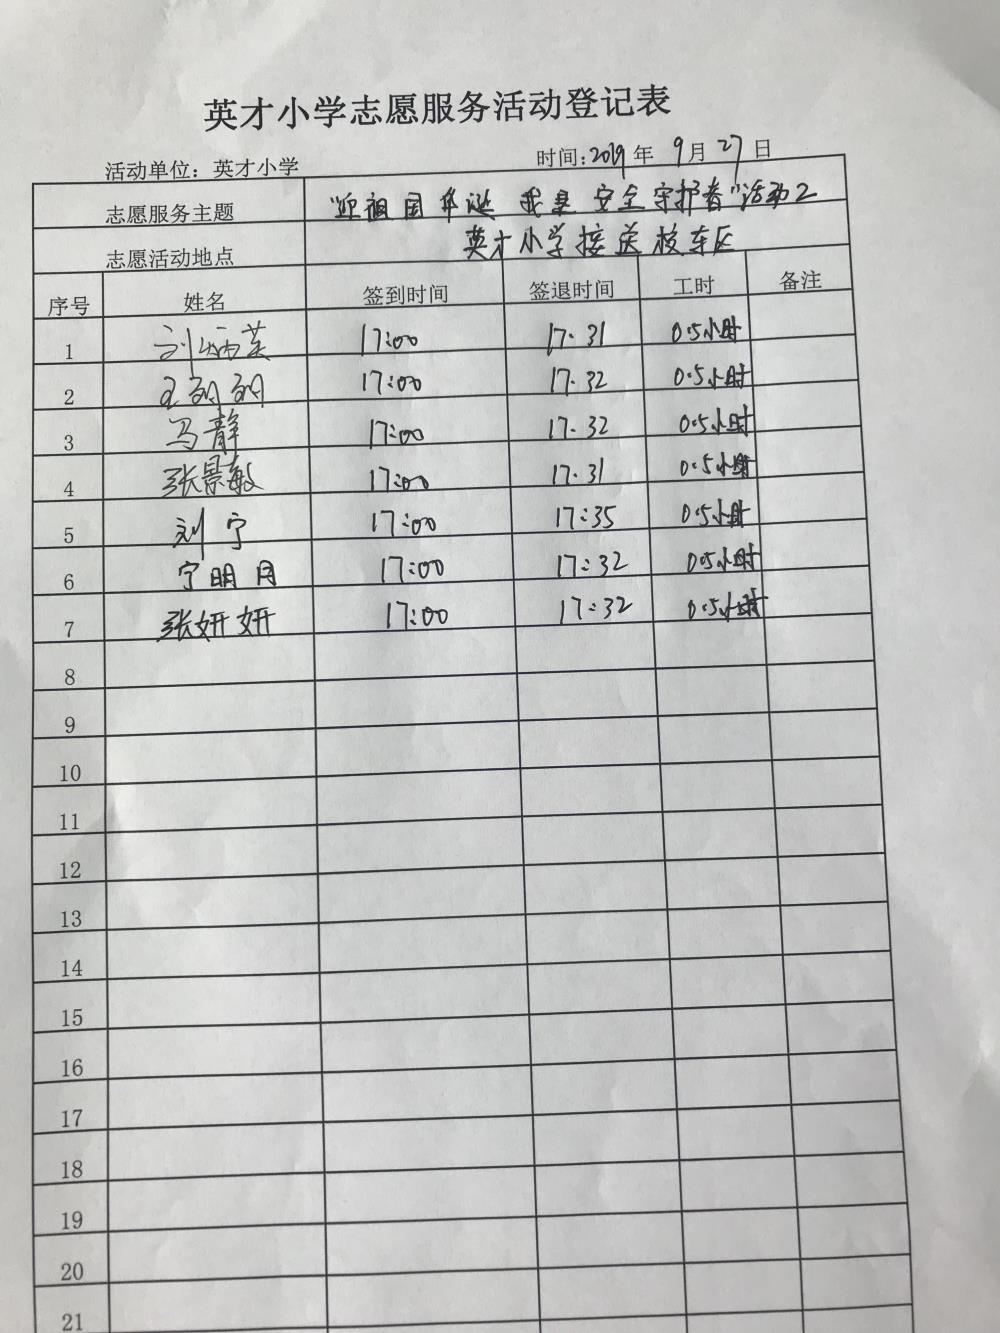 英才小学志愿服务活动登记表
活动单位：英才小学 时间：2019年 9月 27日
志愿服务主题 "迎祖国华诞 我是 安全守护者"活动2
志愿活动地点 英才小学接送校车区
序号 姓名 签到时间 签退时间 工时 备注
1 刘 英 17:00 17.31 0.5小时
2 王 17:00 17.32 0.5小时
3 马静 17:00 17.32 0.5小时
4 张景敏 17:00 17.31 0.5小时
5 刘宁 17:00 17:35 0.5小时
6 宁明月 17:00 17:32 0.5小时
7 张妍妍 17:00 17:32 0.5小时
8
9
10
11
12
13
14
15
16
17
18
19
20
21